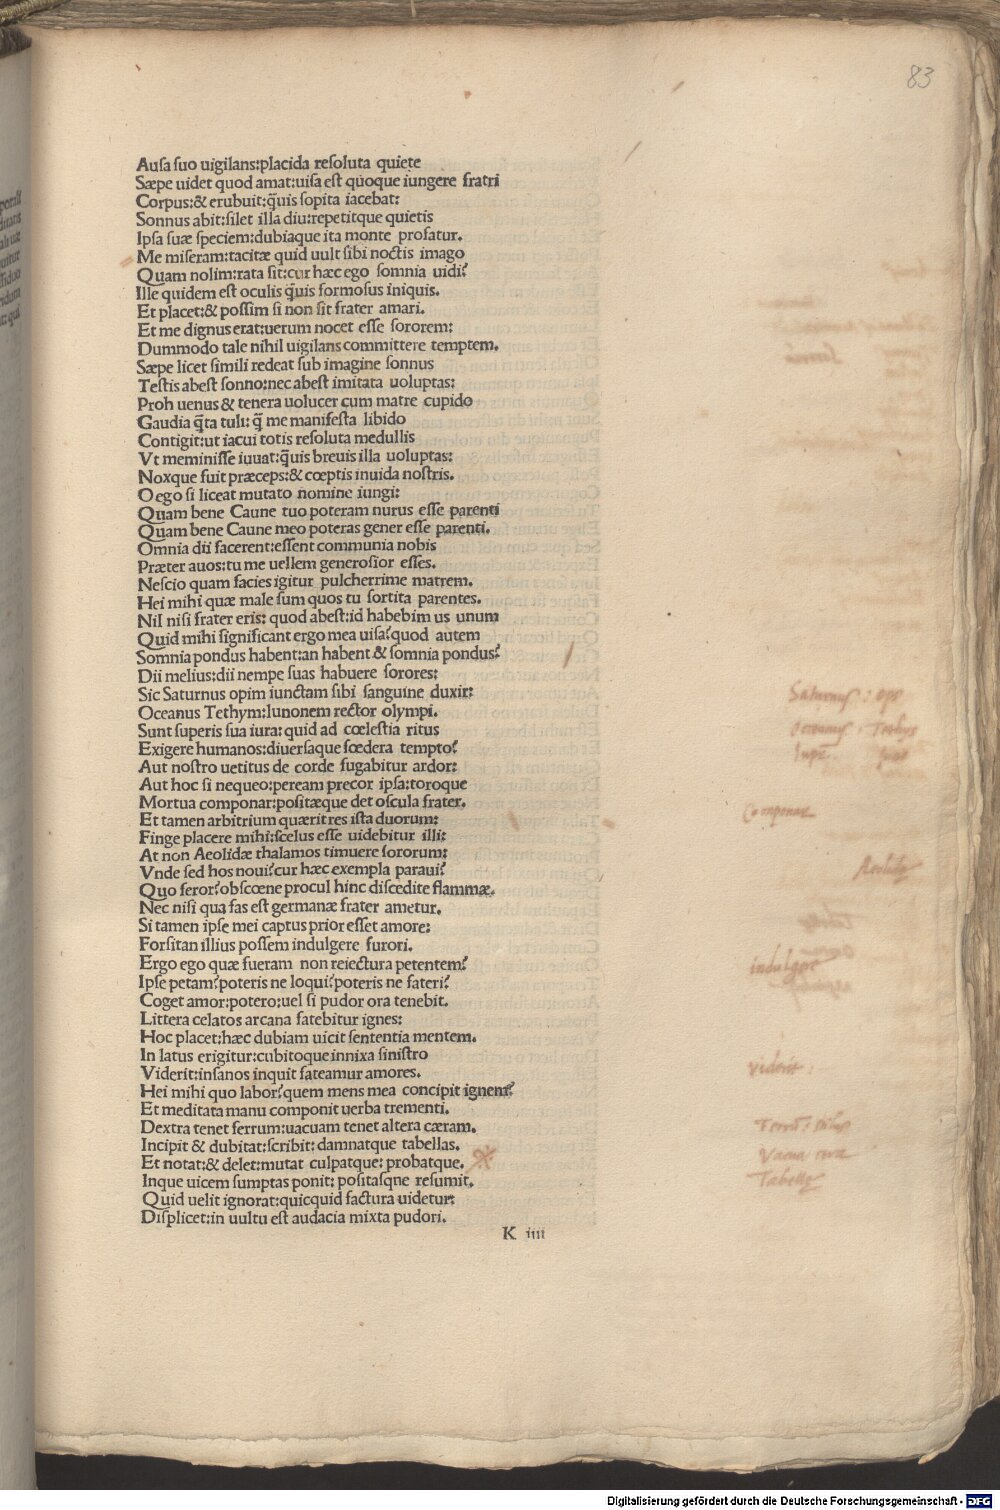 83
Ausa suo uigilans:placida resoluta quiete
Sæpe uidet quod amat:uisa est quoque iungere fratri
Corpus:& erubuit:q̃uis sopita iacebat:
Sonnus abit:silet illa diu:repetitque quietis
Ipsa suæ speciem:dubiaque ita monte profatur.
Me miseram:tacitæ quid uult sibi noctis imago
Quam nolim:rata sit:cur hæc ego somnia uidi?
Ille quidem est oculis q̃uis formosus iniquis.
Et placet:& possim si non sit frater amari.
Et me dignus erat:uerum nocet esse sororem:
Dummodo tale nihil uigilans committere temptem.
Sæpe licet simili redeat sub imagine sonnus
Testis abest sonno:nec abest imitata uoluptas:
Proh uenus & tenera uolucer cum matre cupido
Gaudia q̃ta tuli: q̃ me manifesta libido
Contigit:ut iacui totis resoluta medullis
Vt meminisse iuuat:q̃uis breuis illa uoluptas:
Noxque fuit præceps:& cœptis inuida nostris.
O ego si liceat mutato nomine iungi:
Quam bene Caune tuo poteram nurus esse parenti
Quam bene Caune meo poteras gener esse parenti.
Omnia dii facerent:essent communia nobis
Præter auos:tu me uellem generosior esses.
Nescio quam facies igitur pulcherrime matrem.
Hei mihi quæ male sum quos tu sortita parentes.
Nil nisi frater eris: quod abest:id habebim us unum
Quid mihi significant ergo mea uisa?quod autem
Somnia pondus habent:an habent & somnia pondus?
Dii melius:dii nempe suas habuere sorores:
Sic Saturnus opim iunctam sibi sanguine duxir:
Oceanus Tethym:Iunonem rector olympi.
Sunt superis sua iura: quid ad cœlestia ritus
Exigere humanos:diuersaque fœdera tempto?
Aut nostro uetitus de corde fugabitur ardor:
Aut hoc si nequeo:peream precor ipsa:toroque
Mortua componar:positæque det oscula frater.
Et tamen arbitrium quærit res ista duorum:
Finge placere mihi:scelus esse uidebitur illi:
At non Aeolidæ thalamos timuere sororum:
Vnde sed hos noui?cur hæc exempla paraui?
Quo feror?obscœne procul hinc discedite flammæ.
Nec nisi qua fas est germanæ frater ametur.
Si tamen ipse mei captus prior esset amore:
Forsitan illius possem indulgere furori.
Ergo ego quæ fueram non reiectura petentem?
Ipse petam?poteris ne loqui?poteris ne fateri?
Coget amor:potero:uel si pudor ora tenebit.
Littera celatos arcana fatebitur ignes:
Hoc placet:hæc dubiam uicit sententia mentem.
In latus erigitur:cubitoque innixa sinistro
Viderit:insanos inquit fateamur amores.
Hei mihi quo labor?quem mens mea concipit ignem?
Et meditata manu componit uerba trementi.
Dextra tenet ferrum:uacuam tenet altera cæram.
Incipit & dubitat:scribit: damnatque tabellas.
Et notat:& delet:mutat culpatque: probatque.
Inque uicem sumptas ponit: positasqne resumit.
Quid uelit ignorat:quicquid factura uidetur:
Displicet:in uultu est audacia mixta pudori.
K iiii
Saturnus : opp
Oceanus : Tethys
Componar
Aeolide
indulgere
viderit :
Vacua cera
Tabelle
Digitalisierung gefördert durch die Deutsche Forschungsgemeinschaft - DFG